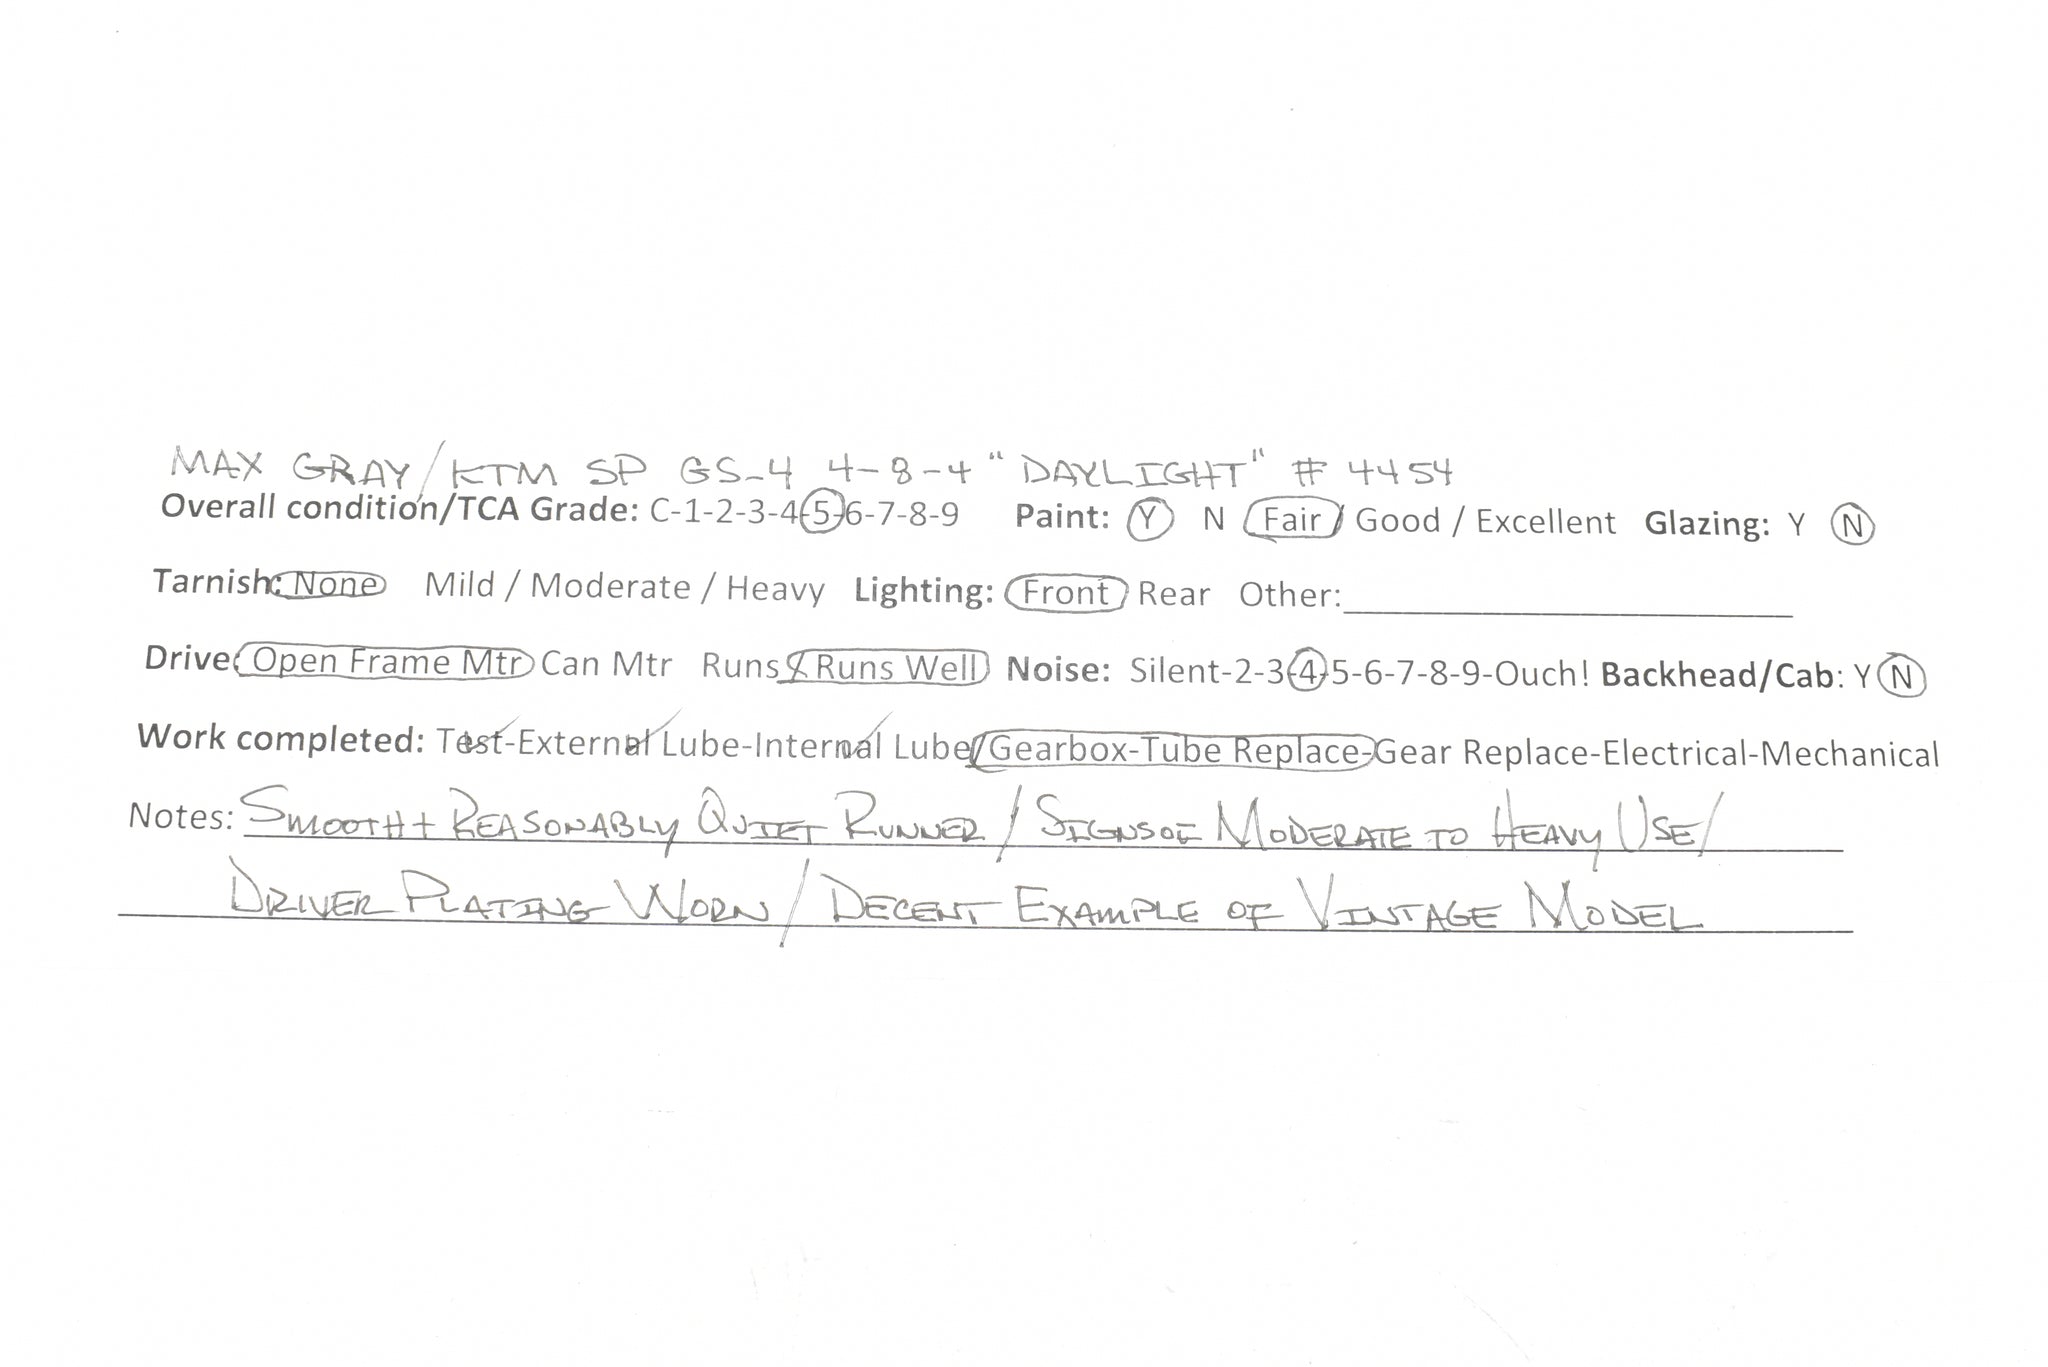 MAX GRAY/KTM SP GS-4 4-8-4 "DAYLIGHT" # 4454
Overall condition/TCA Grade: C-1-2-3-4-5-6-7-8-9 Paint: Y N Fair / Good / Excellent Glazing: Y N
Tarnish: None Mild / Moderate / Heavy Lighting: Front Rear Other:
Drive: Open Frame Mtr Can Mtr Runs / Runs Well Noise: Silent-2-3-4-5-6-7-8-9-Ouch! Backhead/Cab: Y N
Work completed: Test-External Lube-Internal Lube/Gearbox-Tube Replace-Gear Replace-Electrical-Mechanical
Notes: SMOOTH + REASONABLY QUIET RUNNER / SIGNS OF MODERATE TO HEAVY USE/
DRIVER PLATING WORN / DECENT EXAMPLE OF VINTAGE MODEL